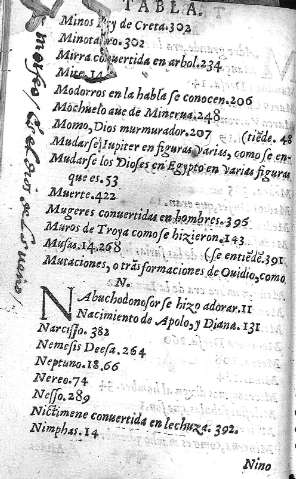 TABLA.
Minos Rey de Creta. 302
Minotauro. 302
Mirra conuertida en arbol. 234
14
Modorros en la habla se conocen. 206
Mochuelo aue de Minerua. 248
Momo, Dios murmurador. 207 (tiẽde. 48
Mudarse Iupiter en figuras varias, como se en-
Mudarse los Dioses en Egypto en varias figuras
que es. 53
Muerte. 422
Mugeres conuertidas en hombres. 396
Muros de Troya como se hizieron. 143
Musas. 14. 268 (se entiẽde. 391
Mutaciones, o trãsformaciones de Ouidio, como
N.
NAbuchodonosor se hizo adorar. 11
Nacimiento de Apolo, y Diana. 131
Narcisso. 382
Nemesis Deesa. 264
Neptuno. 18. 66
Nereo. 74
Nesso. 289
Nictimene conuertida en lechuza. 392.
Nimphas. 14
Nino